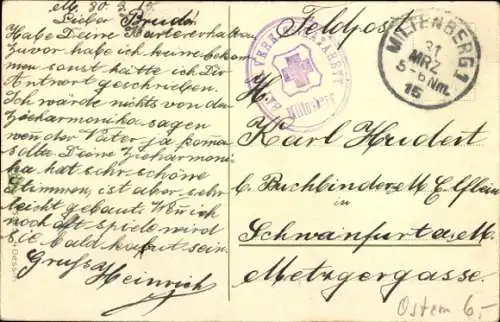 M. 30.3.15.
Lieber Bruder
Habe Deine Karte erhalten
zuvor habe ich keine bekom-
men sonst hätte ich Dir
Antwort geschrieben.
Ich würde nichts von der
Zieharmonika sagen
wen der Vater ja
sollte Deine Zieharmoni-
ka hat sehr schöne
Stimmen, ist aber sehr
leicht gebaut. Wen ich
noch oft spiele wird
sie bald kaput sein.
Gruß Heinrich
Feldpost
MILTENBERG 1
31
MRZ
5-6 Nm.
15
H.
Karl Hudert
b. Buchbinder M. Elflein
in
Schweinfurt a. M.
Metzgergasse.
Ostern 6,-